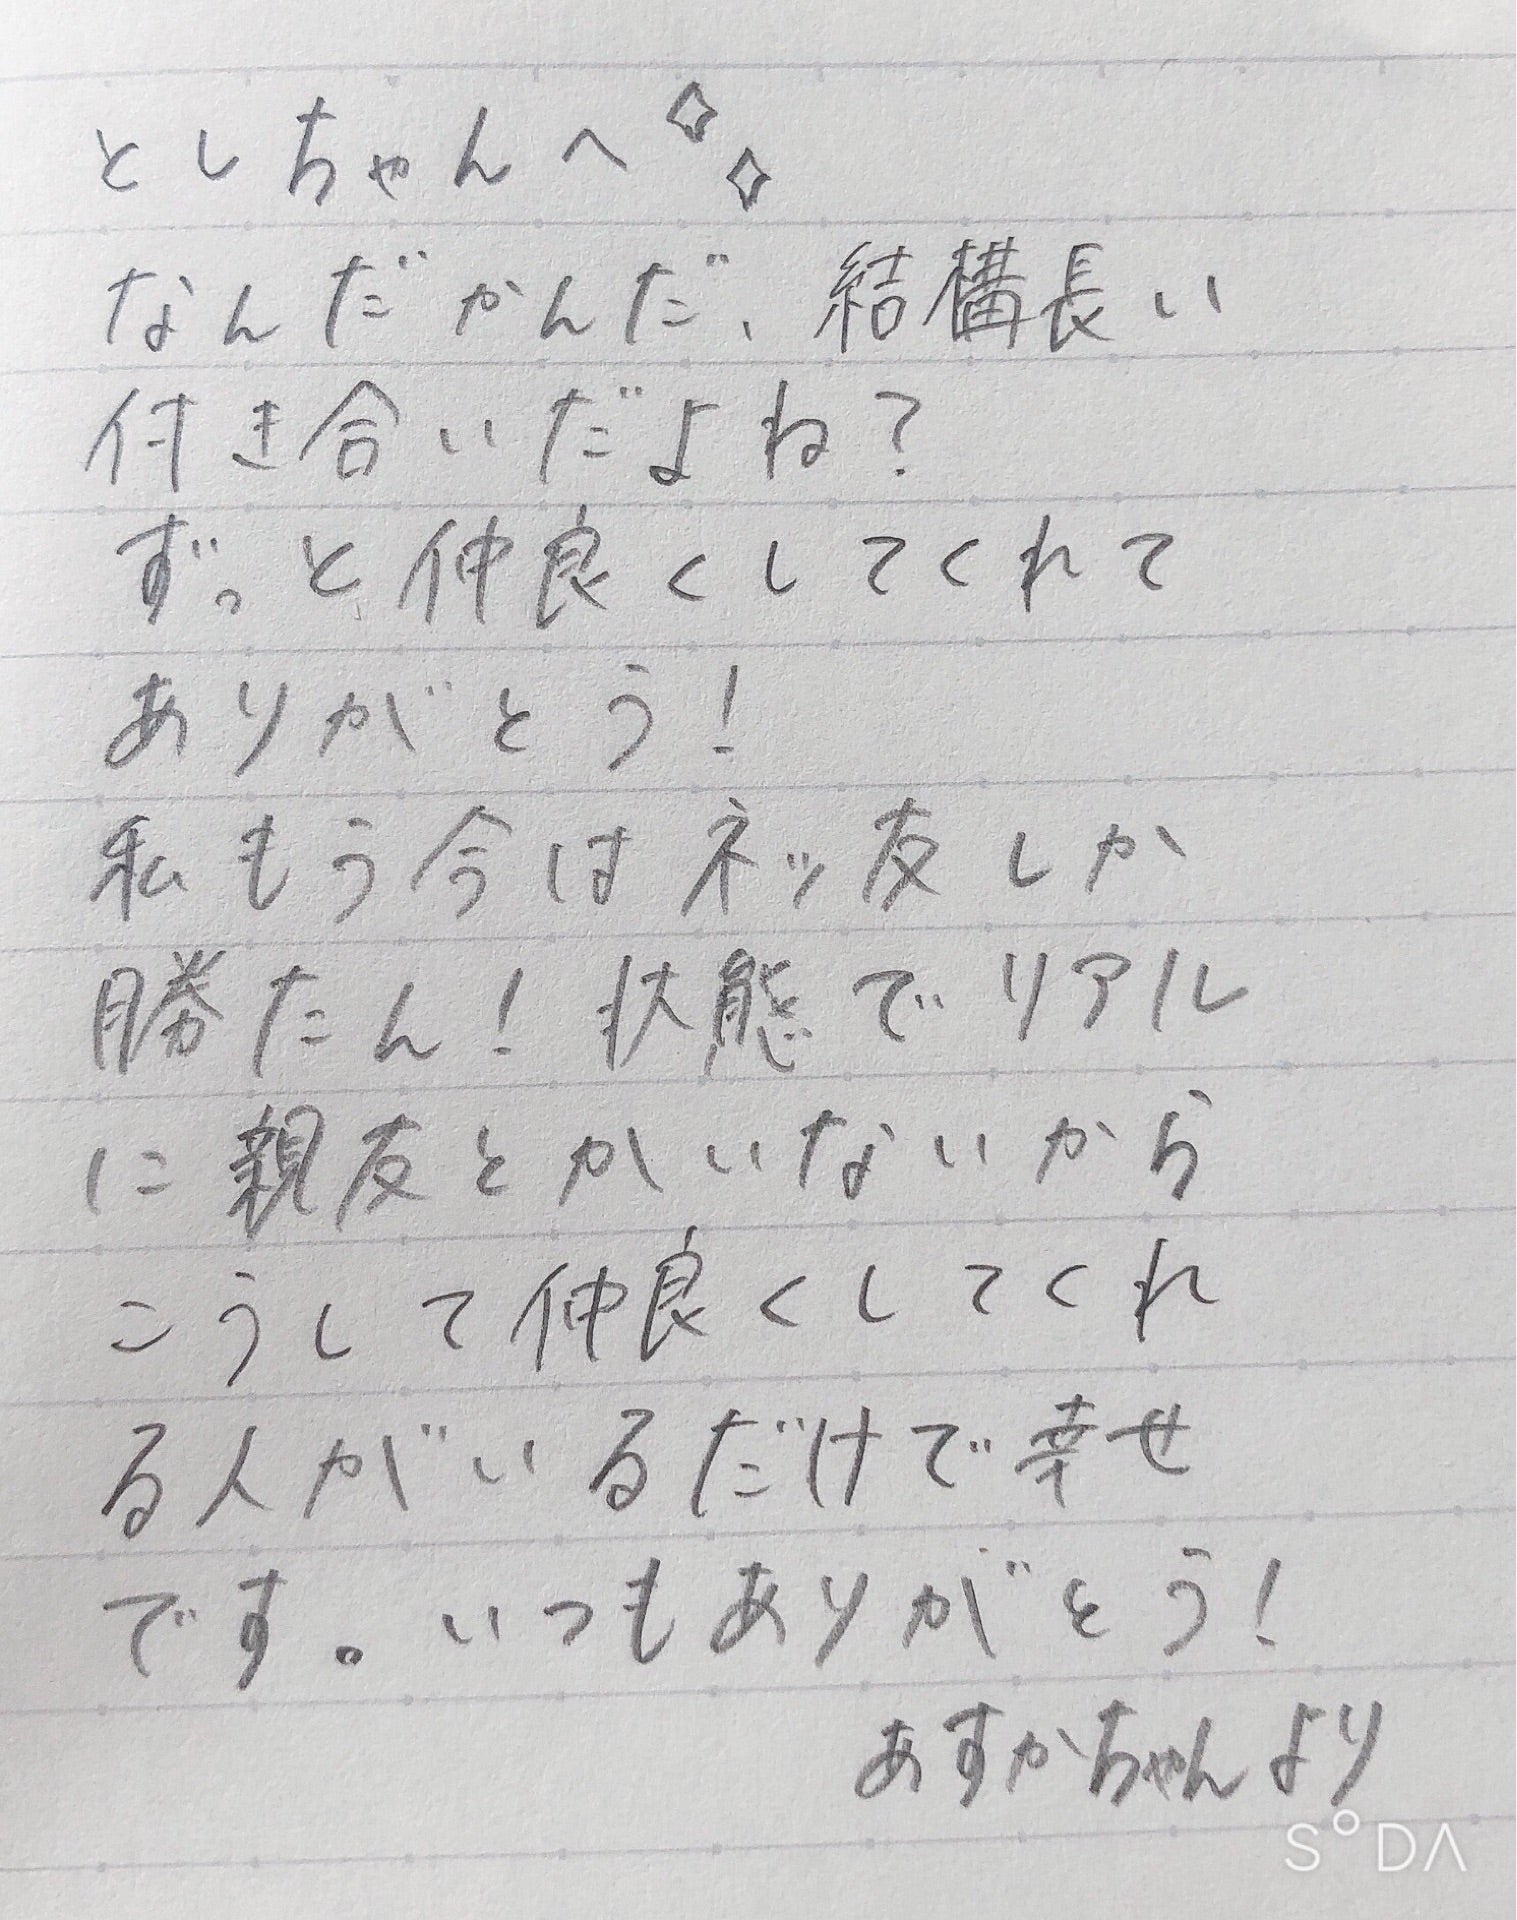 としちゃんへ
なんだかんだ、結構長い
付き合いだよね?
ずっと仲良くしてくれて
ありがとう!
私もう今はネッ友しか
勝たん!状態でリアル
に親友とかいないから
こうして仲良くしてくれ
る人がいるだけで幸せ
です。いつもありがとう!
あすかちゃんより
SODA